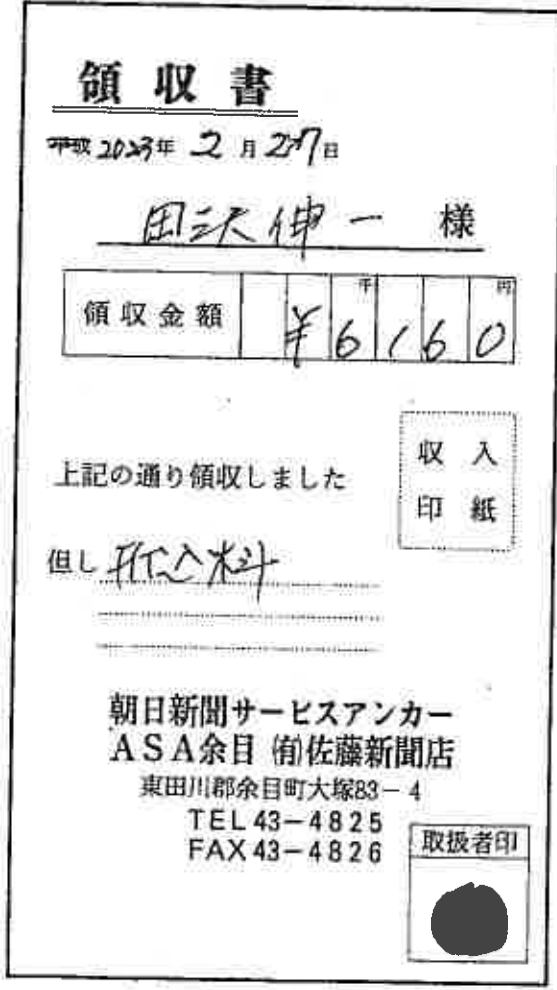 領収書
平成 2023年 2月27日
田沢伸一 様
領収金額 千 円 ¥6160
上記の通り領収しました
収入
印紙
但し 折込料
朝日新聞サービスアンカー
ASA余目 ㈲佐藤新聞店
東田川郡余目町大塚83−4
TEL 43−4825
FAX 43−4826
取扱者印